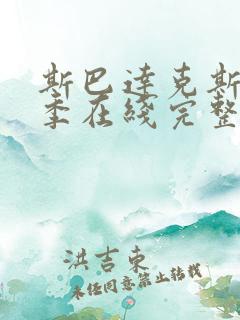 斯巴达克斯
季在线完整
洪吉东
未经同意禁止转载